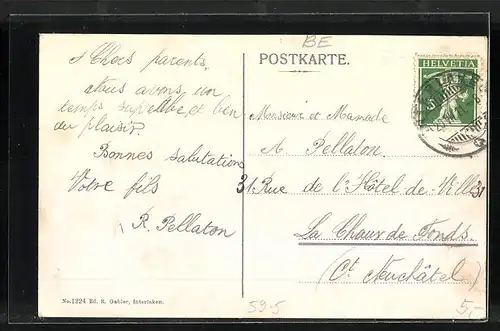 Chers parents,
Nous avons un
temps superbe et bien
du plaisir.
Bonnes salutations
Votre fils
R. Pellaton
No. 1224 Ed. R. Gabler, Interlaken.
BE
POSTKARTE.
HELVETIA
5
Monsieur et Madade
A. Pellaton.
31 Rue de l'Hôtel-de-Ville 31
La Chaux de Fonds.
(Ct. Neuchâtel)
59-5
5,-